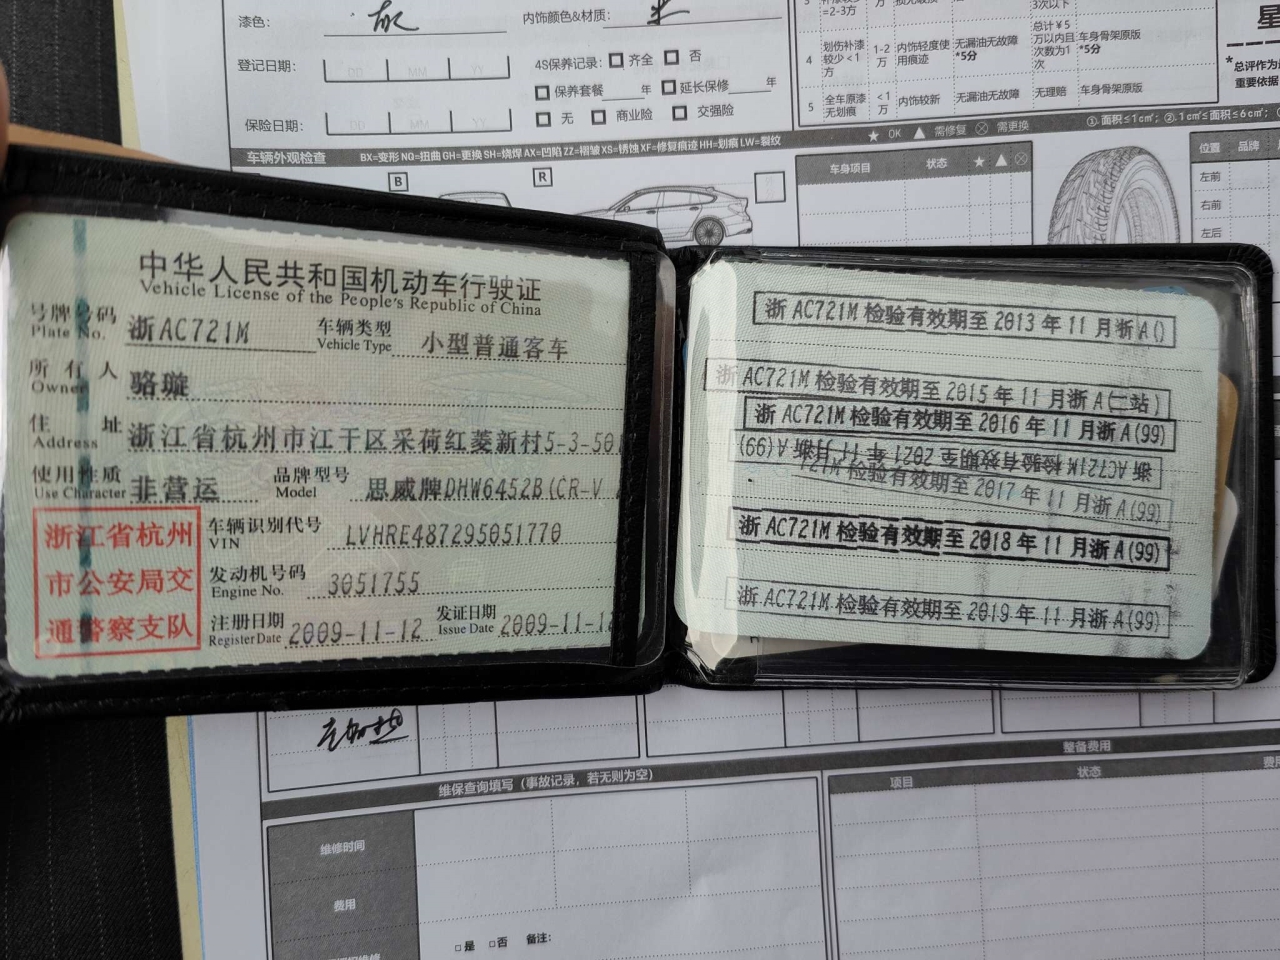 漆色：
内饰颜色&材质：
登记日期：
DD MM YY
4S保养记录： 齐全 否
保养套餐 年 延长保修 年
保险日期：
DD MM YY
无 商业险 交强险
=2-3万
3次以下
4 划伤补漆较少<1方 1-2万 内饰轻度使用痕迹 无漏油无故障*5分 总计¥5万以内且次数为1次 车身骨架原版*5分
5 全车原漆无划痕 <1万 内饰较新 无漏油无故障 无理赔 车身骨架原版
星
*总评作为
重要依据
★ OK ▲ 需修复 ⊗ 需更换
①.面积≤1c㎡; ②.1c㎡≤面积≤6c㎡;
车辆外观检查 BX=变形 NQ=扭曲 GH=更换 SH=烧焊 AX=凹陷 ZZ=褶皱 XS=锈蚀 XF=修复痕迹 HH=划痕 LW=裂纹
B
R
车身项目 状态 ★ ▲ ⊗
位置 品牌
左前
右前
左后
中华人民共和国机动车行驶证
Vehicle License of the People's Republic of China
号牌号码 浙AC721M 车辆类型 小型普通客车
Plate No. Vehicle Type
所有人 骆璇
Owner
住址 浙江省杭州市江干区采荷红菱新村5-3-50
Address
使用性质 非营运 品牌型号 思威牌DHW6452B(CR-V
Use Character Model
车辆识别代号 LVHRE487295051770
VIN
发动机号码 3051755
Engine No.
注册日期 2009-11-12 发证日期 2009-11-12
Register Date Issue Date
浙江省杭州
市公安局交
通警察支队
浙AC721M检验有效期至2013年11月浙A()
浙AC721M检验有效期至2015年11月浙A(二站)
浙AC721M检验有效期至2016年11月浙A(99)
浙AC721M检验有效期至2021年11月浙A(99)
M检验有效期至2017年11月浙A(99)
浙AC721M检验有效期至2018年11月浙A(99)
浙AC721M检验有效期至2019年11月浙A(99)
维保查询填写（事故记录，若无则为空）
维修时间
费用
□是 □否 备注：
整备费用
项目 状态 费用